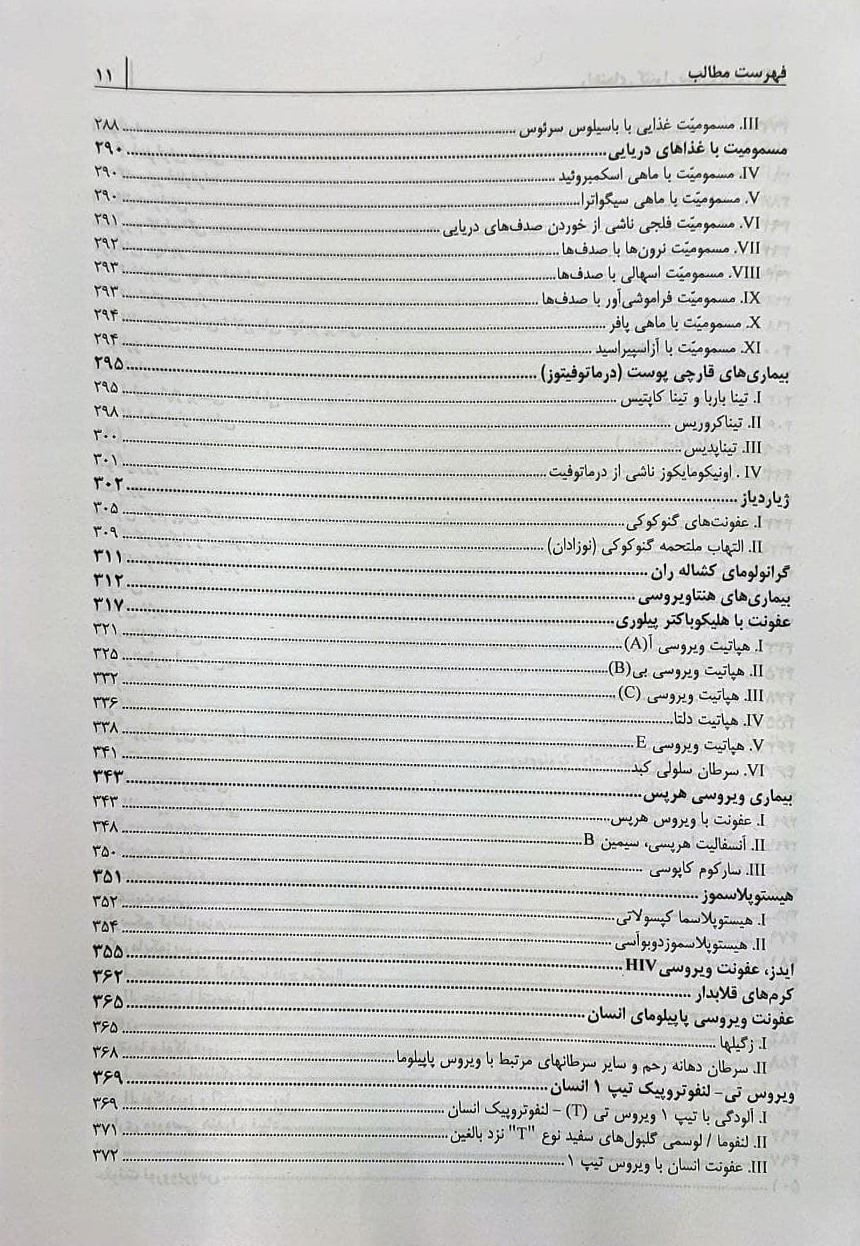 فهرست مطالب ۱۱
III. مسمومیّت غذایی با باسیلوس سرئوس ۲۸۸
مسمومیت با غذاهای دریایی ۲۹۰
IV. مسمومیّت با ماهی اسکمبروئید ۲۹۰
V. مسمومیّت با ماهی سیگواترا ۲۹۰
VI. مسمومیّت فلجی ناشی از خوردن صدف‌های دریایی ۲۹۱
VII. مسمومیّت نرون‌ها با صدف‌ها ۲۹۲
VIII. مسمومیّت اسهالی با صدف‌ها ۲۹۳
IX. مسمومیّت فراموشی‌آور با صدف‌ها ۲۹۳
X. مسمومیّت با ماهی پافر ۲۹۴
XI. مسمومیّت با آزاسپیراسید ۲۹۴
بیماری‌های قارچی پوست (درماتوفیتوز) ۲۹۵
I. تینا باربا و تینا کاپتیس ۲۹۵
II. تیناکروریس ۲۹۸
III. تیناپدیس ۳۰۰
IV . اونیکومایکوز ناشی از درماتوفیت ۳۰۱
ژیاردیاز ۳۰۲
I. عفونت‌های گنوکوکی ۳۰۵
II. التهاب ملتحمه گنوکوکی (نوزادان) ۳۰۹
گرانولومای کشاله ران ۳۱۱
بیماری‌های هنتاویروسی ۳۱۲
عفونت با هلیکوباکتر پیلوری ۳۱۷
I. هپاتیت ویروسی آ(A) ۳۲۱
II. هپاتیت ویروسی بی(B) ۳۲۵
III. هپاتیت ویروسی (C) ۳۳۲
IV. هپاتیت دلتا ۳۳۶
V. هپاتیت ویروسی E ۳۳۸
VI. سرطان سلولی کبد ۳۴۱
بیماری ویروسی هرپس ۳۴۳
I. عفونت با ویروس هرپس ۳۴۳
II. آنسفالیت هرپسی، سیمین B ۳۴۸
III. سارکوم کاپوسی ۳۵۰
هیستوپلاسموز ۳۵۱
I. هیستوپلاسما کپسولاتی ۳۵۲
II. هیستوپلاسموزدوبوآسی ۳۵۴
ایدز، عفونت ویروسی HIV ۳۵۵
کرم‌های قلابدار ۳۶۲
عفونت ویروسی پاپیلومای انسان ۳۶۵
I. زگیلها ۳۶۵
II. سرطان دهانه رحم و سایر سرطانهای مرتبط با ویروس پاپیلوما ۳۶۸
ویروس تی- لنفوتروپیک تیپ ۱ انسان ۳۶۹
I. آلودگی با تیپ ۱ ویروس تی (T) – لنفوتروپیک انسان ۳۶۹
II. لنفوما / لوسمی گلبول‌های سفید نوع "T" نزد بالغین ۳۷۱
III. عفونت انسان با ویروس تیپ ۱ ۳۷۲